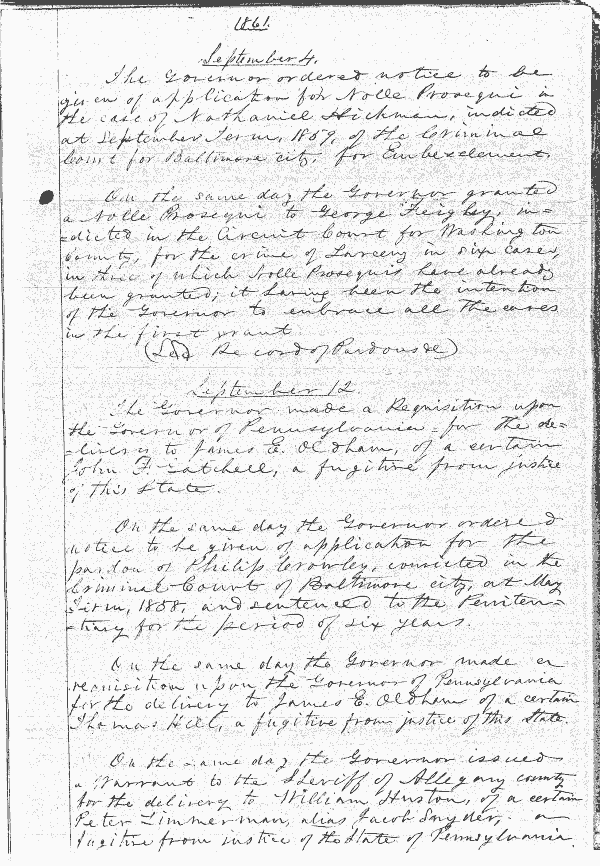 1861.
September 4.
The Governor ordered notice to be
given of application for Nolle Prosequi in
the case of Nathaniel Hickman, indicted
at September Term, 1859, of the Criminal
Court for Baltimore city, for Embezzlement.
On the same day the Governor granted
a Nolle Prosequi to George Feighly, in=
=dicted in the Circuit Court for Washington
County, for the crime of Larceny in six cases,
in three of which Nolle Prosequis have already
been granted; it having been the intention
of the Governor to embrace all the cases
in the first grant
Record of Pardons &c)
September 12.
The Governor made a Requisition upon
the Governor of Pennsylvania for the de=
=livery to James E. Oldham, of a certain
John F. Gatchell, a fugitive from justice
of this State.
On the same day the Governor ordered
notice to be given of application for the
pardon of Philip Crowley, convicted in the
Criminal Court of Baltimore city, at May
Term, 1858, and sentenced to the Peniten=
=tiary for the period of six years.
On the same day the Governor made a
requisition upon the Governor of Pennsylvania
for the delivery to James E. Oldham of a certain
Thomas Hill, a fugitive from justice of this State.
On the same day the Governor issued
a Warrant to the Sheriff of Allegany county
for the delivery to William Huston, of a certain
Peter Zimmerman, alias Jacob Snyder, a
fugitive from justice of the State of Pennsylvania.